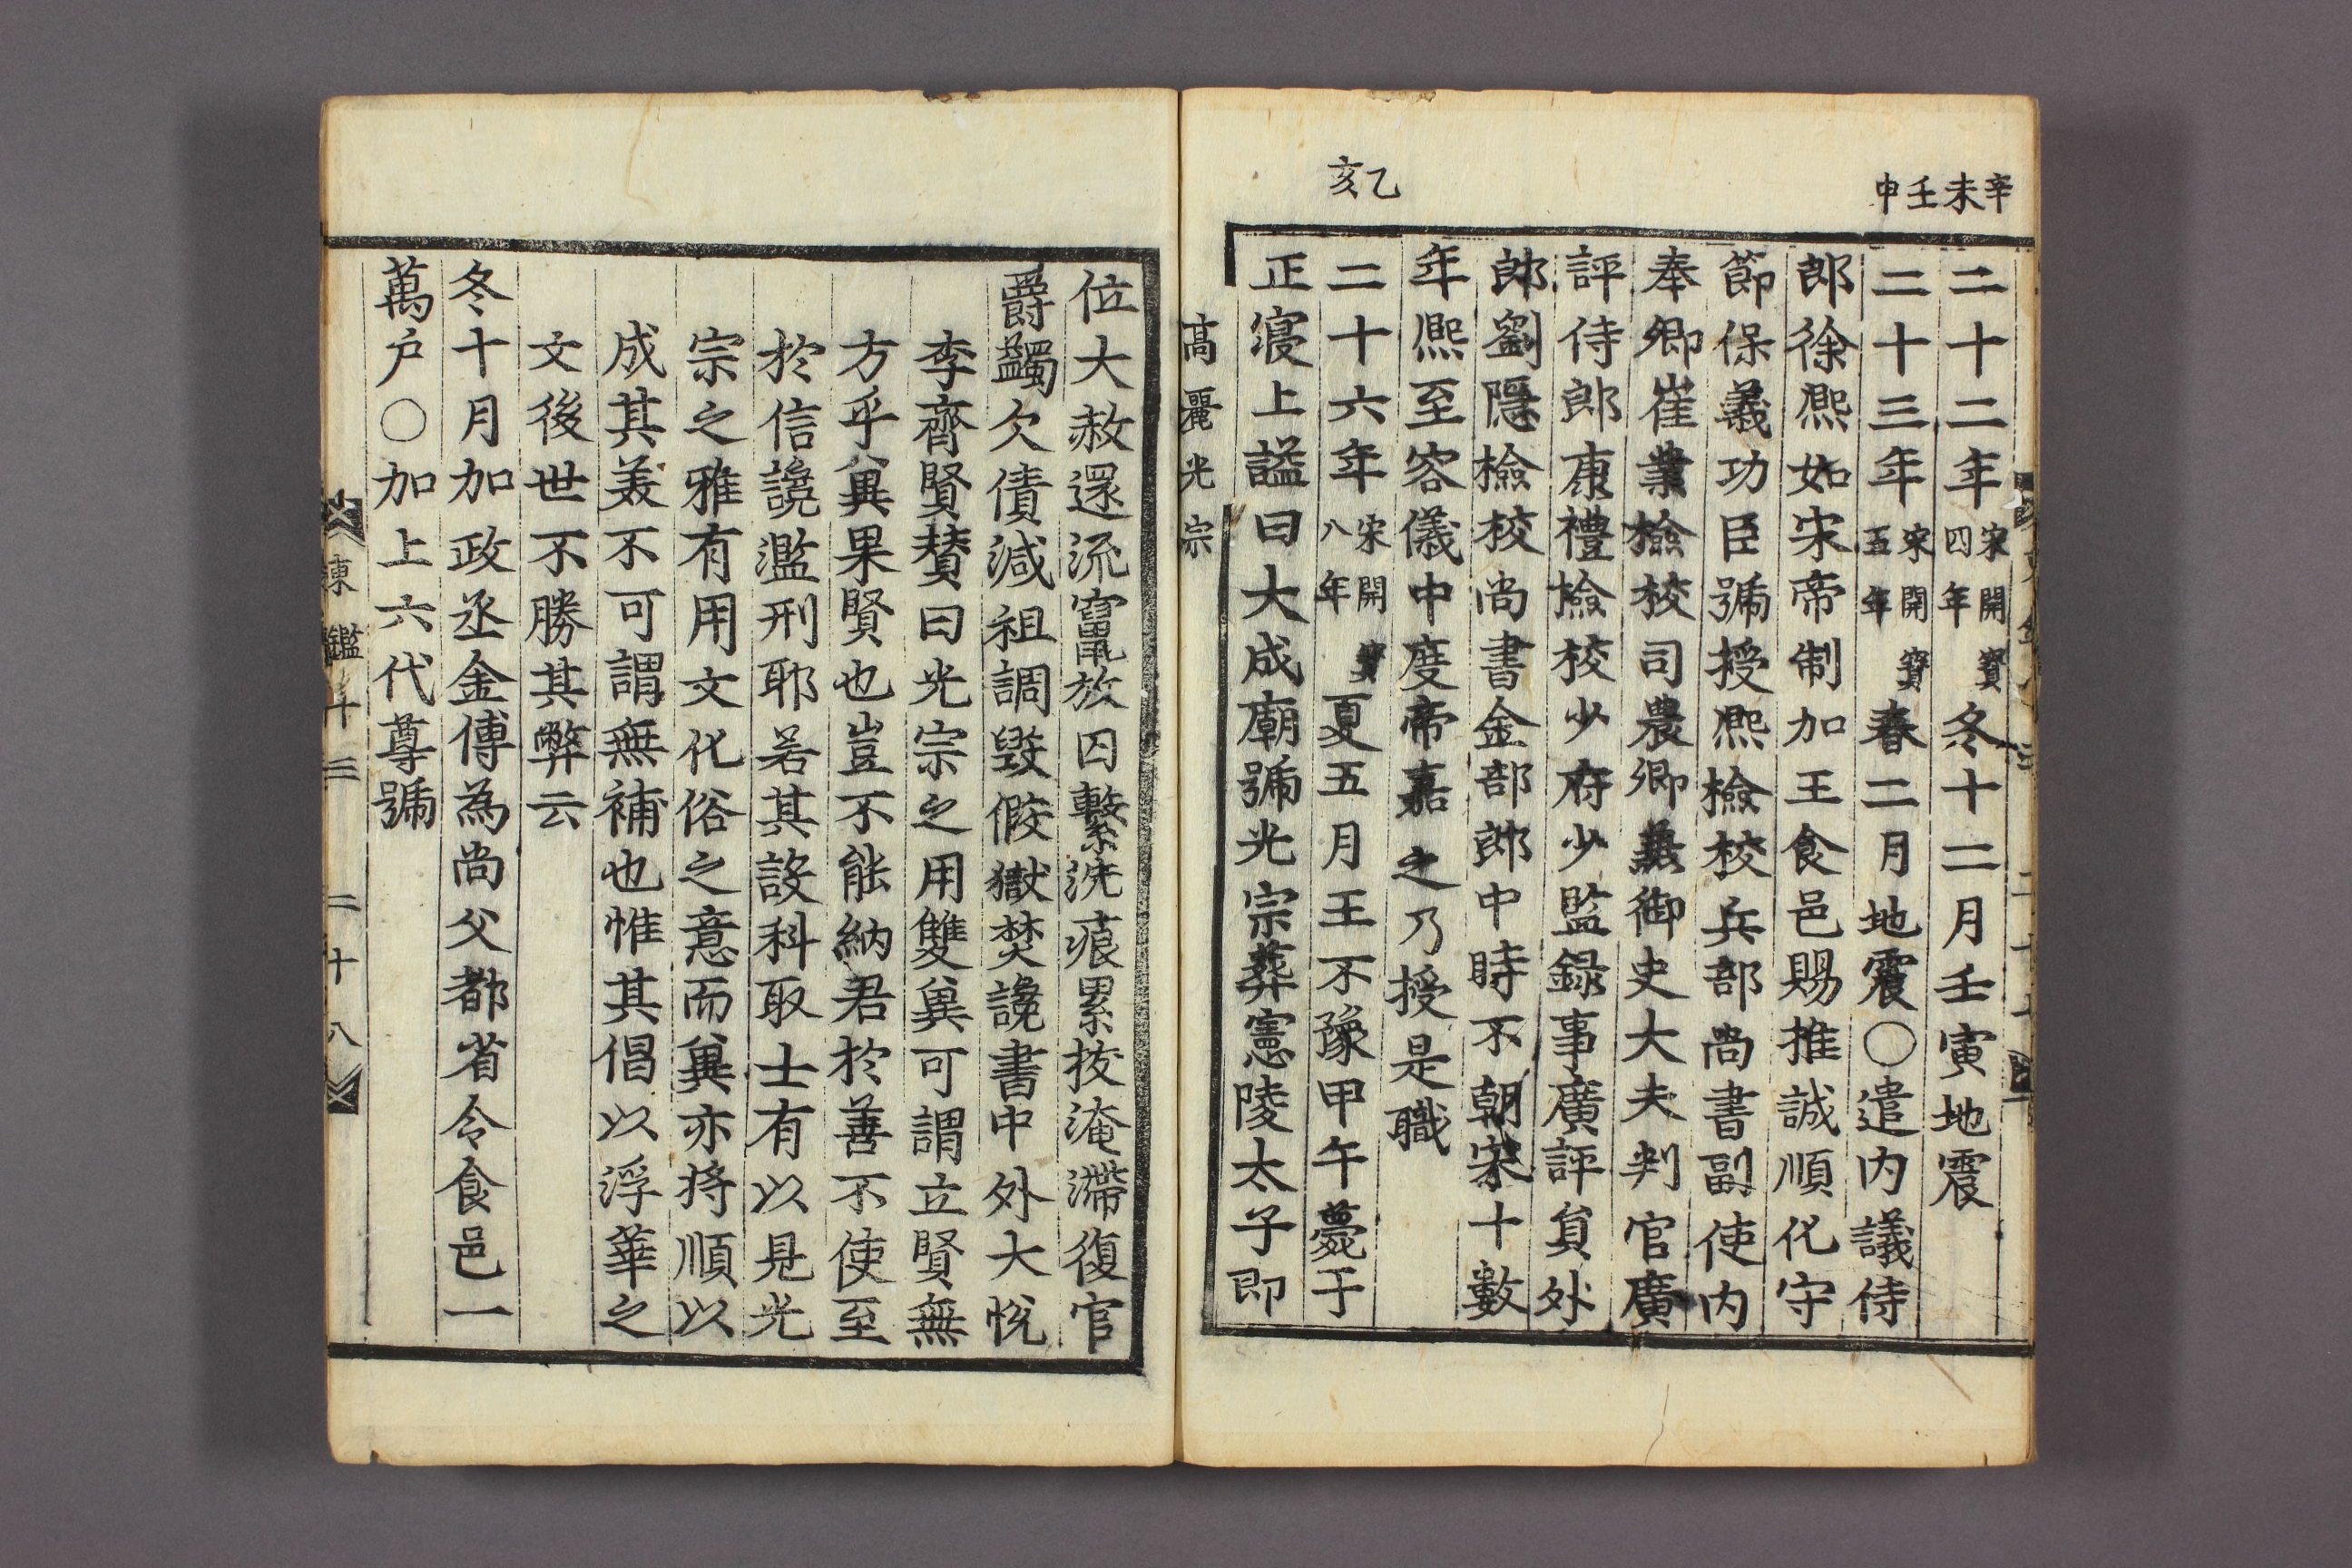 辛未
壬申
二十二年宋開寶四年冬十二月壬寅地震
二十三年宋開寶五年春二月地震○遣内議侍
郎徐熙如宋帝制加王食邑賜推誠順化守
節保義功臣號授熙檢校兵部尚書副使内
奉卿崔業檢校司農卿兼御史大夫判官廣
評侍郎康禮檢校少府少監録事廣評負外
郎劉隠檢校尚書金部郎中時不朝宋十數
年熙至容儀中度帝嘉之乃授是職
乙亥
二十六年宋開寶八年夏五月王不豫甲午薨于
正寑上謚曰大成廟號光宗葬憲陵太子即
高麗光宗
位大赦還流竄放囚繫洗痕累抜淹滯復官
爵蠲欠債減祖調毀假獄焚讒書中外大悅
李齊賢賛曰光宗之用雙兾可謂立賢無
方乎兾果賢也豈不能納君於善不使至
於信讒濫刑耶若其設科取士有以見光
宗之雅有用文化俗之意而兾亦将順以
成其美不可謂無補也惟其倡以浮華之
文後世不勝其弊云
冬十月加政丞金傅為尚父都省令食邑一
萬户○加上六代尊號
東鑑十三 二十八